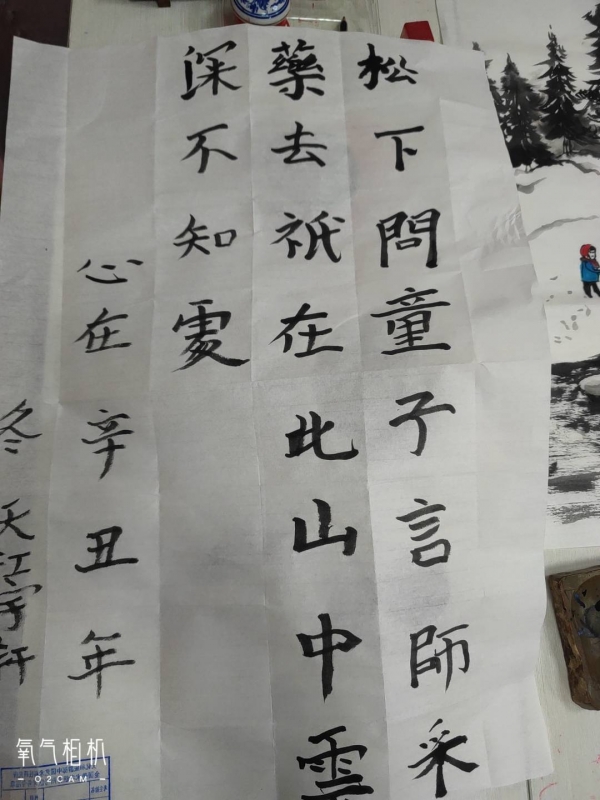 松下問童子言師采
藥去祇在此山中雲
深不知處
心在辛丑年
冬天江宇軒
氧气相机
O2CAM